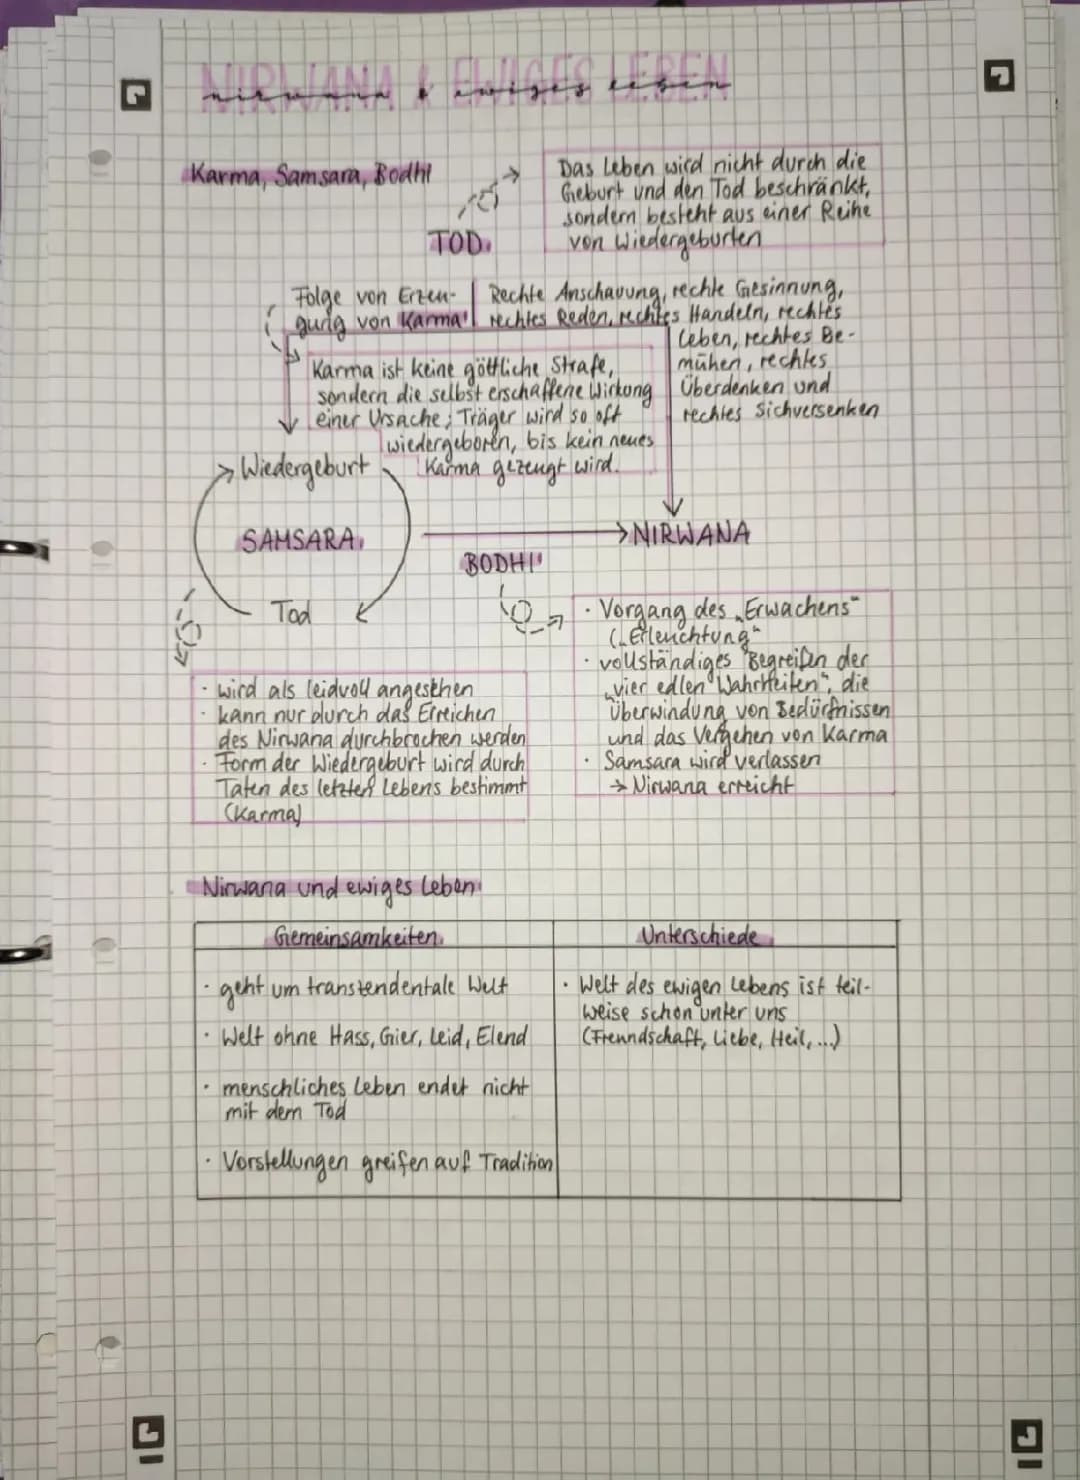 NIRWANA & EWIGES LEBEN
nirwana & ewiges leben
Karma, Samsara, Bodhi
Das Leben wird nicht durch die
Geburt und den Tod beschränkt,
sondern besteht aus einer Reihe
von Wiedergeburten
TOD
Folge von Erzeu-
gung von Karma
Rechte Anschauung, rechte Gesinnung,
rechtes Reden, rechtes Handeln, rechtes
Leben, rechtes Be-
mühen, rechtes
Überdenken und
rechtes Sichversenken
Karma ist keine göttliche Strafe,
sondern die selbst erschaffene Wirkung
einer Ursache; Träger wird so oft
wiedergeboren, bis kein neues
Karma gezeugt wird.
Wiedergeburt
SAMSARA
Tod
BODHI
NIRWANA
· Vorgang des „Erwachens"
(„Erleuchtung"
· vollständiges Begreifen der
„vier edlen Wahrheiten", die
Überwindung von Bedürfnissen
und das Vergehen von Karma
· Samsara wird verlassen
→ Nirwana erreicht
· wird als leidvoll angesehen
· kann nur durch das Erreichen
des Nirwana durchbrochen werden
· Form der Wiedergeburt wird durch
Taten des letzten Lebens bestimmt
(Karma)
Nirwana und ewiges Leben
Gemeinsamkeiten
· geht um transzendentale Welt
· Welt ohne Hass, Gier, Leid, Elend
· menschliches Leben endet nicht
mit dem Tod
· Vorstellungen greifen auf Tradition
Unterschiede
· Welt des ewigen Lebens ist teil-
weise schon unter uns
(Freundschaft, Liebe, Heil, ...)